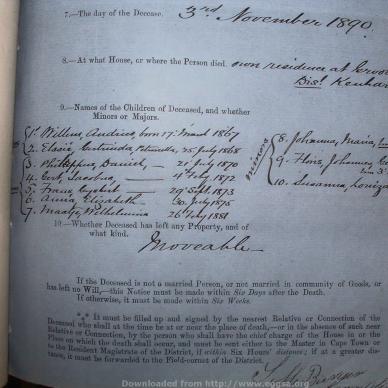 7.—The day of the Decease. 3rd November 1890.
8.—At what House, or where the Person died. own residence at
Dist. Kenhar
9.—Names of the Children of Deceased, and whether
Minors or Majors.
1. Willem, Andries, born 17 March 1867
2. Elsie, Gertruida, Petronella, 25 July 1868
3. Philippus, Daniel, — 21 July 1870
4. Gert, Jacobus, — 4 Feby 1872
5. Frans, — 29 Sept 1873
6. Anna, Elizabeth — 30 July 1875
7. Maatje, Wilhelmina 26 July 1881
minors
8. Johanna, Maria,
9. Floris, Johannes,
10. Susanna, Louiza
10.—Whether Deceased has left any Property, and of
what kind.
Moveable
If the Deceased is not a married Person, or not married in community of Goods, or
has left no Will,—this Notice must be made within Six Days after the Death.
If otherwise, it must be made within Six Weeks.
*** It must be filled up and signed by the nearest Relative or Connection of the
Deceased who shall at the time be at or near the place of death,—or in the absence of such near
Relative or Connection, by the person who shall have the chief charge of the House in or the
Place on which the death shall occur, and must be sent either to the Master in Cape Town or
to the Resident Magistrate of the District, if within Six Hours' distance; if at a greater dis-
tance, it must be forwarded to the Field-cornet of the District.
Downloaded from http://www.eggsa.org/